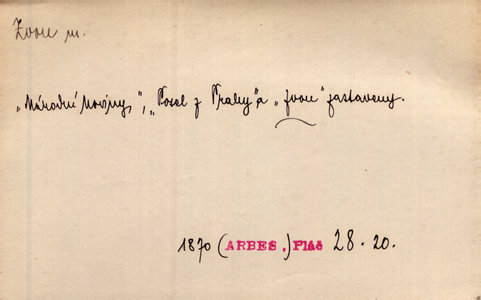 Zvon m.
„Národní Noviny", „Posel z Prahy" a „Zvon" zastaveny.
1870 (ARBES.) Pláč 28. 20.